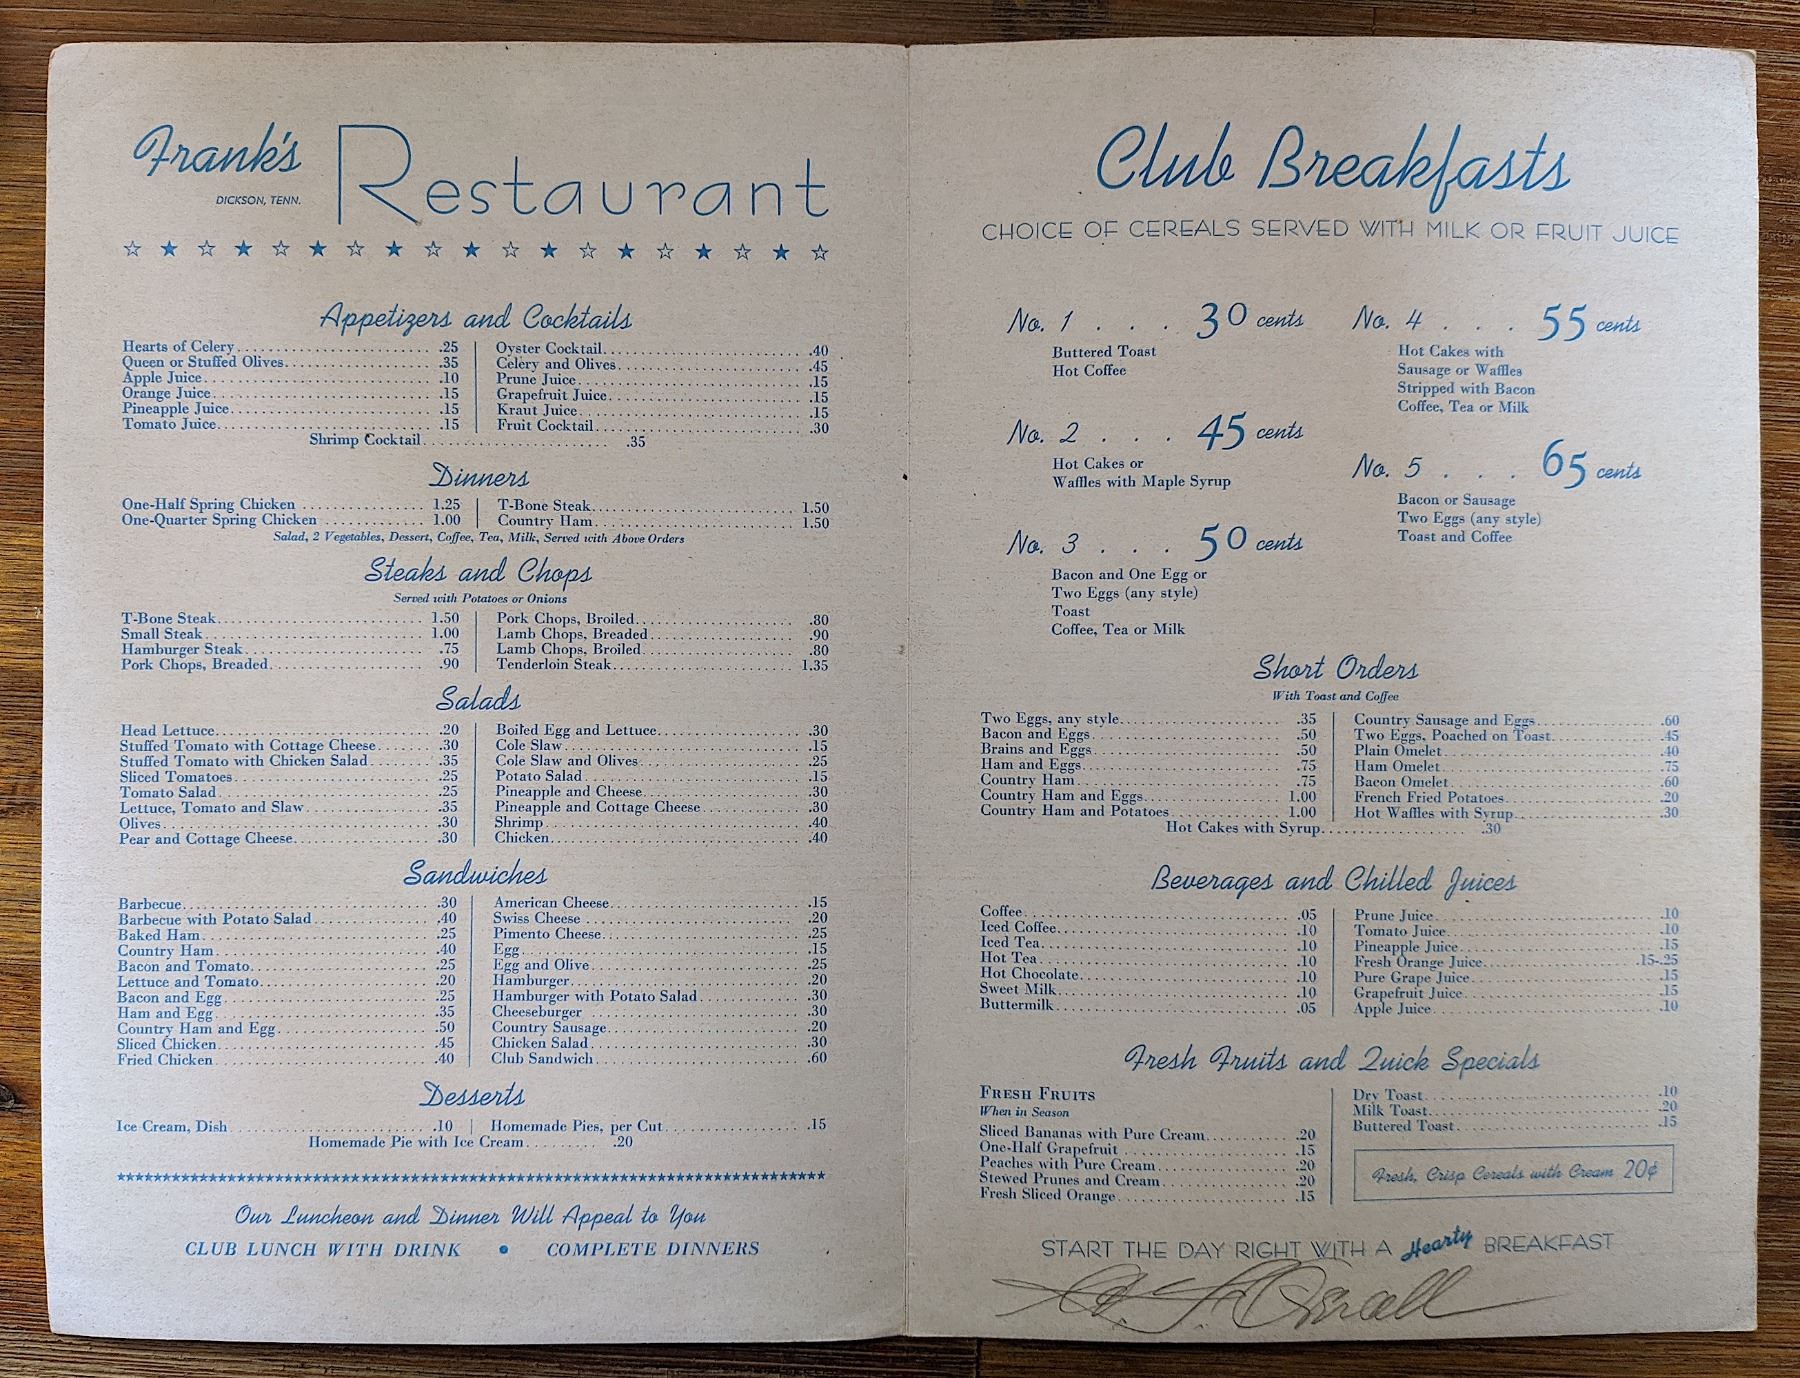 Frank's Restaurant
DICKSON, TENN.
Appetizers and Cocktails
Hearts of Celery .25
Queen or Stuffed Olives .35
Apple Juice .10
Orange Juice .15
Pineapple Juice .15
Tomato Juice .15
Oyster Cocktail .40
Celery and Olives .45
Prune Juice .15
Grapefruit Juice .15
Kraut Juice .15
Fruit Cocktail .30
Shrimp Cocktail .35
Dinners
One-Half Spring Chicken 1.25
One-Quarter Spring Chicken 1.00
T-Bone Steak 1.50
Country Ham 1.50
Salad, 2 Vegetables, Dessert, Coffee, Tea, Milk, Served with Above Orders
Steaks and Chops
Served with Potatoes or Onions
T-Bone Steak 1.50
Small Steak 1.00
Hamburger Steak .75
Pork Chops, Breaded .90
Pork Chops, Broiled .80
Lamb Chops, Breaded .90
Lamb Chops, Broiled .80
Tenderloin Steak 1.35
Salads
Head Lettuce .20
Stuffed Tomato with Cottage Cheese .30
Stuffed Tomato with Chicken Salad .35
Sliced Tomatoes .25
Tomato Salad .25
Lettuce, Tomato and Slaw .35
Olives .30
Pear and Cottage Cheese .30
Boiled Egg and Lettuce .30
Cole Slaw .15
Cole Slaw and Olives .25
Potato Salad .15
Pineapple and Cheese .30
Pineapple and Cottage Cheese .30
Shrimp .40
Chicken .40
Sandwiches
Barbecue .30
Barbecue with Potato Salad .40
Baked Ham .25
Country Ham .40
Bacon and Tomato .25
Lettuce and Tomato .20
Bacon and Egg .25
Ham and Egg .35
Country Ham and Egg .50
Sliced Chicken .45
Fried Chicken .40
American Cheese .15
Swiss Cheese .20
Pimento Cheese .25
Egg .15
Egg and Olive .25
Hamburger .20
Hamburger with Potato Salad .30
Cheeseburger .30
Country Sausage .20
Chicken Salad .30
Club Sandwich .60
Desserts
Ice Cream, Dish .10
Homemade Pies, per Cut .15
Homemade Pie with Ice Cream .20
Our Luncheon and Dinner Will Appeal to You
CLUB LUNCH WITH DRINK • COMPLETE DINNERS
Club Breakfasts
CHOICE OF CEREALS SERVED WITH MILK OR FRUIT JUICE
No. 1 . . . 30 cents
Buttered Toast
Hot Coffee
No. 2 . . . 45 cents
Hot Cakes or
Waffles with Maple Syrup
No. 3 . . . 50 cents
Bacon and One Egg or
Two Eggs (any style)
Toast
Coffee, Tea or Milk
No. 4 . . . 55 cents
Hot Cakes with
Sausage or Waffles
Stripped with Bacon
Coffee, Tea or Milk
No. 5 . . . 65 cents
Bacon or Sausage
Two Eggs (any style)
Toast and Coffee
Short Orders
With Toast and Coffee
Two Eggs, any style .35
Bacon and Eggs .50
Brains and Eggs .50
Ham and Eggs .75
Country Ham .75
Country Ham and Eggs 1.00
Country Ham and Potatoes 1.00
Country Sausage and Eggs .60
Two Eggs, Poached on Toast .45
Plain Omelet .40
Ham Omelet .75
Bacon Omelet .60
French Fried Potatoes .20
Hot Waffles with Syrup .30
Hot Cakes with Syrup .30
Beverages and Chilled Juices
Coffee .05
Iced Coffee .10
Iced Tea .10
Hot Tea .10
Hot Chocolate .10
Sweet Milk .10
Buttermilk .05
Prune Juice .10
Tomato Juice .10
Pineapple Juice .15
Fresh Orange Juice .15-.25
Pure Grape Juice .15
Grapefruit Juice .15
Apple Juice .10
Fresh Fruits and Quick Specials
FRESH FRUITS
When in Season
Sliced Bananas with Pure Cream .20
One-Half Grapefruit .15
Peaches with Pure Cream .20
Stewed Prunes and Cream .20
Fresh Sliced Orange .15
Dry Toast .10
Milk Toast .20
Buttered Toast .15
Fresh, Crisp Cereals with Cream 20¢
START THE DAY RIGHT WITH A Hearty BREAKFAST